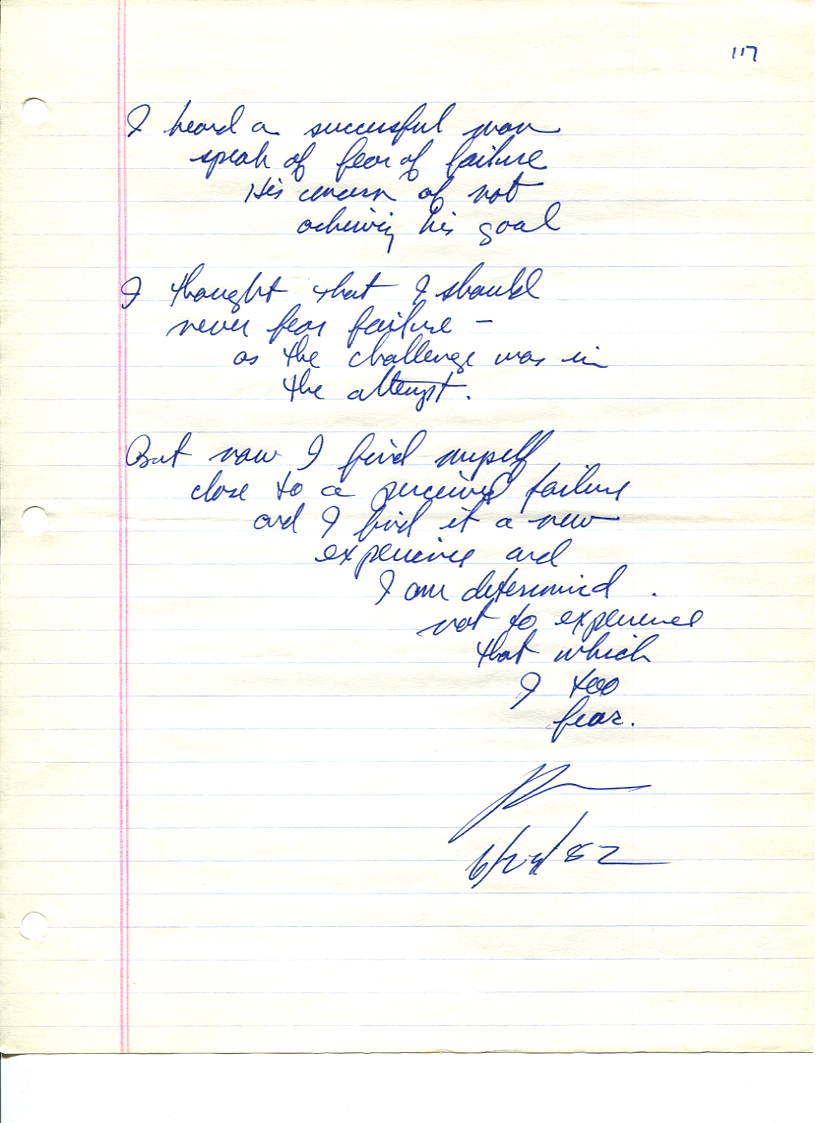 117
I heard a successful man
speak of fear of failure
His concern of not
achieving his goal
I thought that I should
never fear failure -
as the challenge was in
the attempt.
But now I find myself
close to a perceived failure
and I find it a new
experience and
I am determined
not to experience
that which
I too
fear.